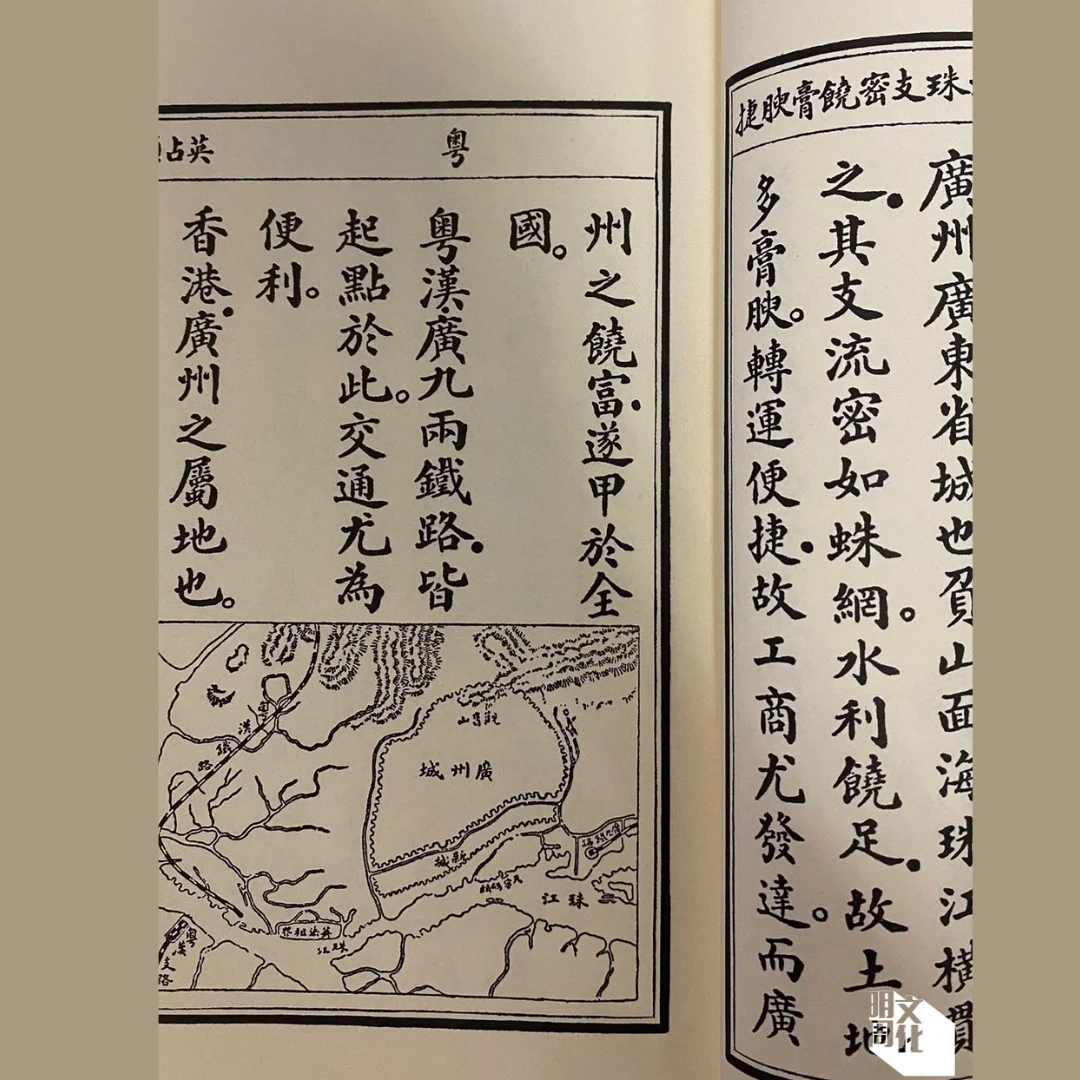 珠支密饒膏腴捷
廣州廣東省城也負山面海珠江橫貫
之。其支流密如蛛網。水利饒足。故土地
多膏腴。轉運便捷。故工商尤發達。而廣
粵
英占
州之饒富。遂甲於全
國。
粵漢廣九兩鐵路。皆
起點於此。交通尤為
便利。
香港。廣州之屬地也。
觀音山
廣州城
新城
粵漢鐵路
天字碼頭
珠江
英法租界
珠江
粵漢支路
明周文化